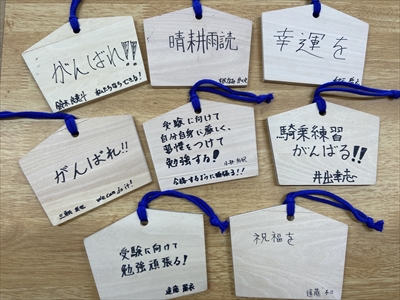 がんばれ!!
私たちならできる!
晴耕雨読
幸運を
がんばれ!!
We can do it!
受験に向けて
自分自身に厳しく、
習慣をつけて
勉強する!
合格するように頑張る!!
騎乗練習
がんばる!!
井出孝志
受験に向けて
勉強頑張る!
祝福を